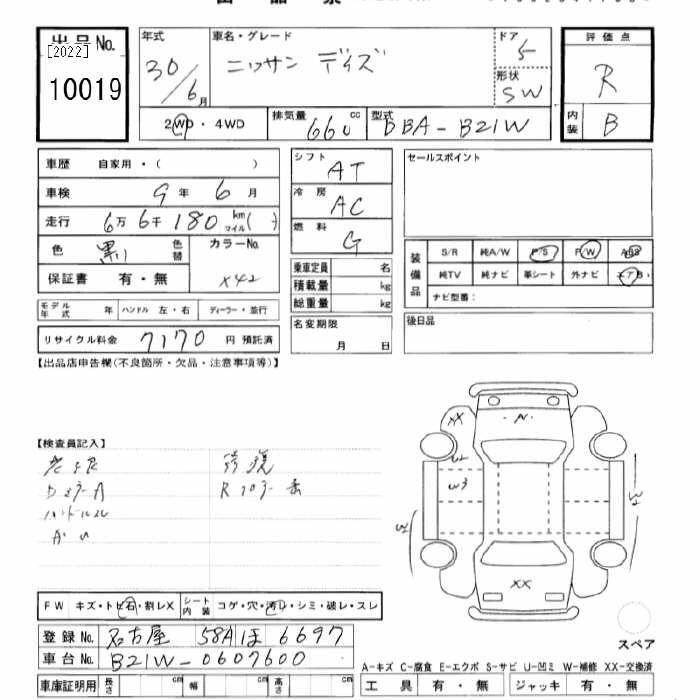 出品No.
[2022]
10019
年式 30/6月
車名・グレード ニッサン デイズ
ドア 5
形状 SW
評価点 R
内装 B
2WD・4WD
排気量 660 cc
型式 DBA-B21W
車歴 自家用・( )
車検 9年 6月
走行 6万6千180 km マイル( )
色 黒 色替
カラーNo. X42
保証書 有・無
モデル年式 年 ハンドル 左・右 ディーラー・並行
リサイクル料金 7170 円 預託済
シフト AT
冷房 AC
燃料 G
乗車定員 名
積載量 kg
総重量 kg
名変期限 月 日
セールスポイント
装備品
S/R 純A/W P/S P/W ABS
純TV 純ナビ 革シート 外ナビ エアB.
ナビ型番:
後日品
【出品店申告欄(不良箇所・欠品・注意事項等)】
【検査員記入】
R
XX N XX
W2
W3
W2
W2
XX
FW キズ・トビ石・割レX シート内装 コゲ・穴・汚レ・シミ・破レ・スレ
登録No. 名古屋 58A ほ 6697
車台No. B21W-0607600
車庫証明用 長さ cm 幅 cm 高さ cm
スペア
A-キズ C-腐食 E-エクボ S-サビ U-凹ミ W-補修 XX-交換済
工具 有・無 ジャッキ 有・無